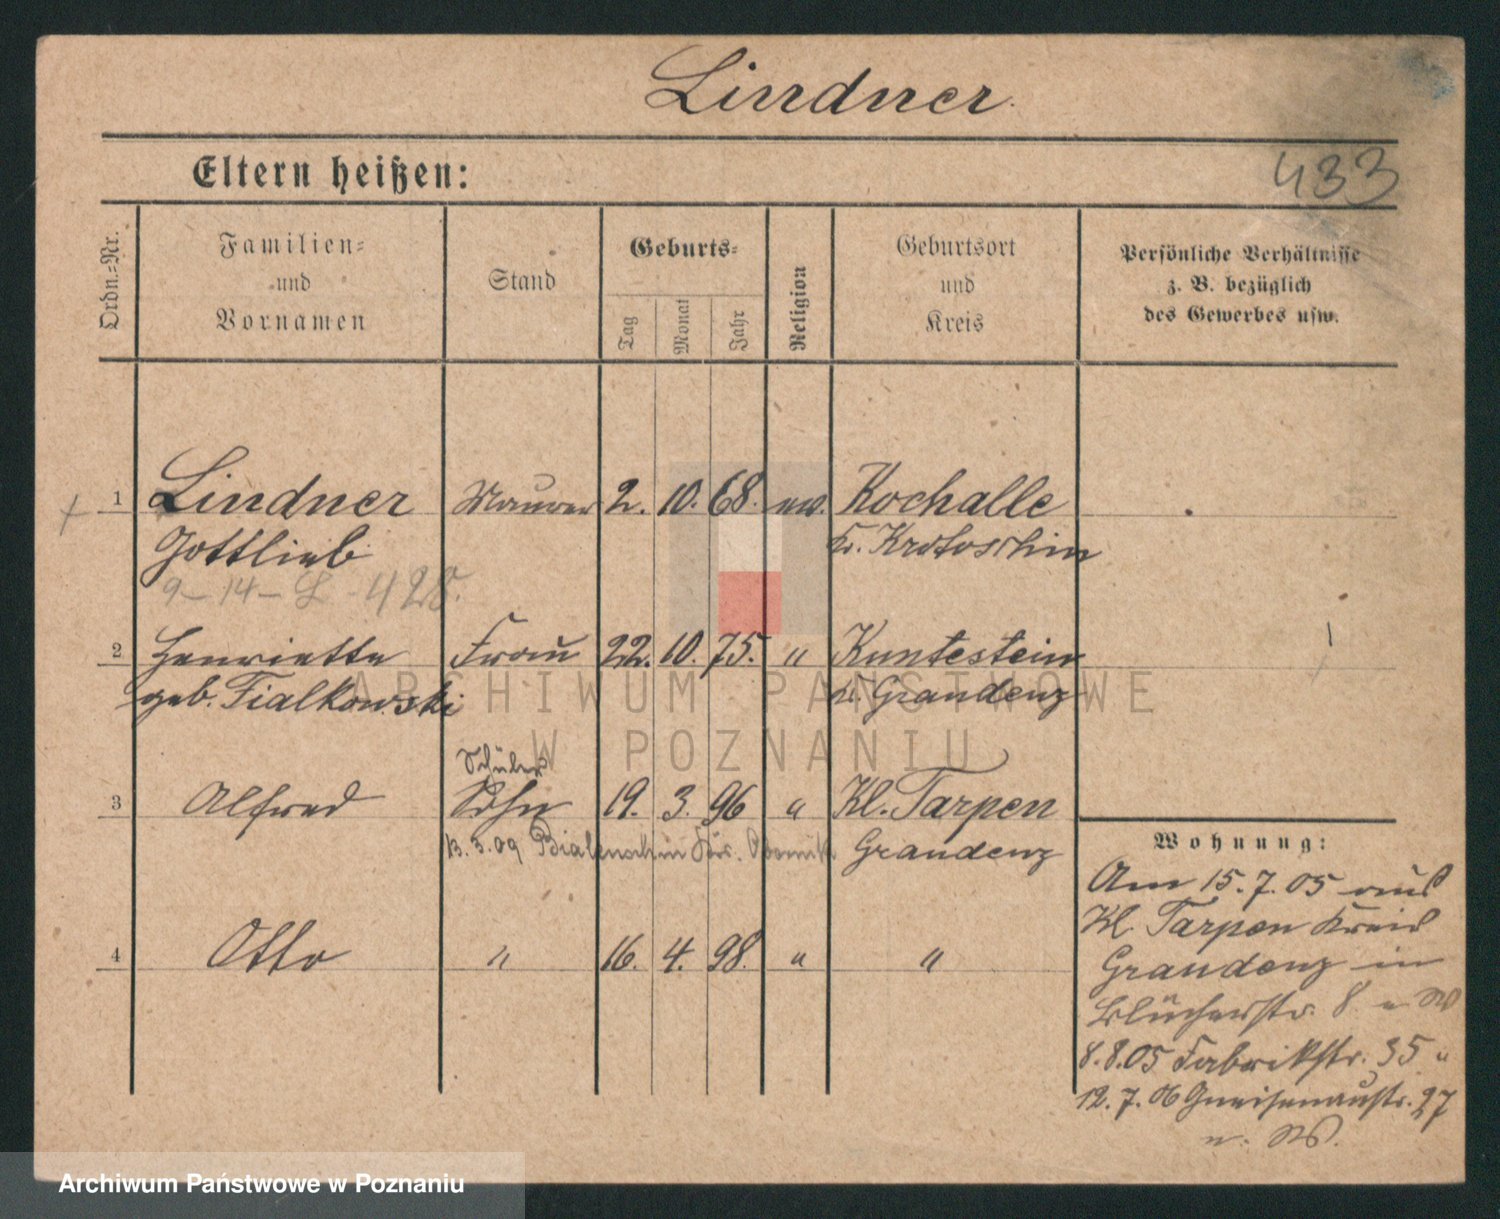 Lindner.
Eltern heißen:
433
Ordn.=Nr.
Familien=
und
Vornamen
Stand
Geburts=
Tag
Monat
Jahr
Religion
Geburtsort
und
Kreis
Persönliche Verhältnisse
z. B. bezüglich
des Gewerbes usw.
1 Lindner Maurer 2. 10. 68. ev. Kochalle
Gottlieb Kr. Krotoschin
9-14-L 428.
2 Henriette Frau 22. 10. 75. " Kuntestein
geb. Fialkowski Kr. Graudenz
Schüler
3 Alfred Sohn 19. 3. 96 " Kl. Tarpen
13. 3. 09 Graudenz
4 Otto " 16. 4. 98. " "
Wohnung:
Am 15. 7. 05 aus
Kl. Tarpen Kreis
Graudenz in
Blücherstr. 8
8.8.05 Fabrikstr. 35
12. 7. 06 Gneisenaustr. 27
ARCHIWUM PAŃSTWOWE
W POZNANIU
Archiwum Państwowe w Poznaniu